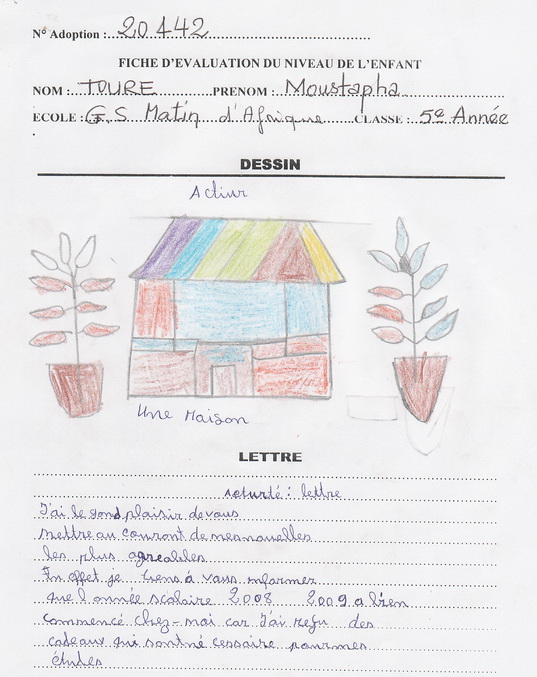 N° Adoption : 20442
FICHE D'EVALUATION DU NIVEAU DE L'ENFANT
NOM : TOURE PRENOM : Moustapha
ECOLE : G.S Matin d'Afrique CLASSE : 5e Année
DESSIN
Une Maison
LETTRE
lettre
J'ai le gond plaisir de vous
mettre au couront de mes nouvelles
les plus agreables
En effet je tiens à vous informer
que l'année scolaire 2008 2009 a bien
commencé chez-moi car J'ai reçu des
cadeaux qui sont né cessaire pour mes
études